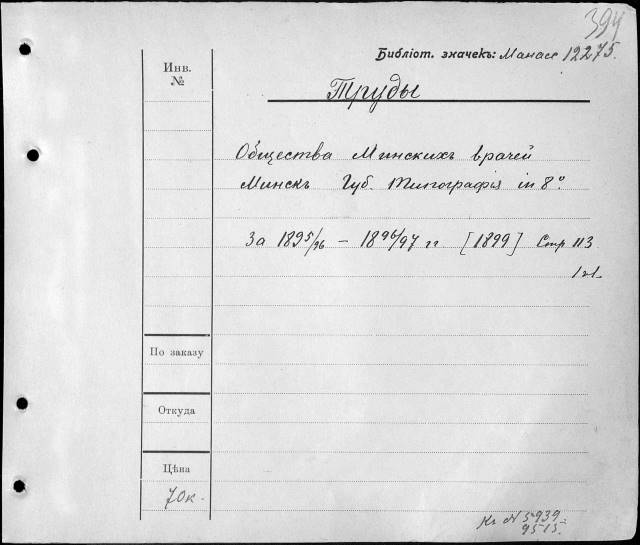 394
Библіот. значекъ: Манасс 12275.
Инв.
№
Труды
Общества Минскихъ врачей
Минскъ Губ. Типографія in 8°.
За 1895/96 – 1896/97 гг [1899] Стр 113
По заказу
Откуда
Цѣна
70к.
Кг № 5939
9515.